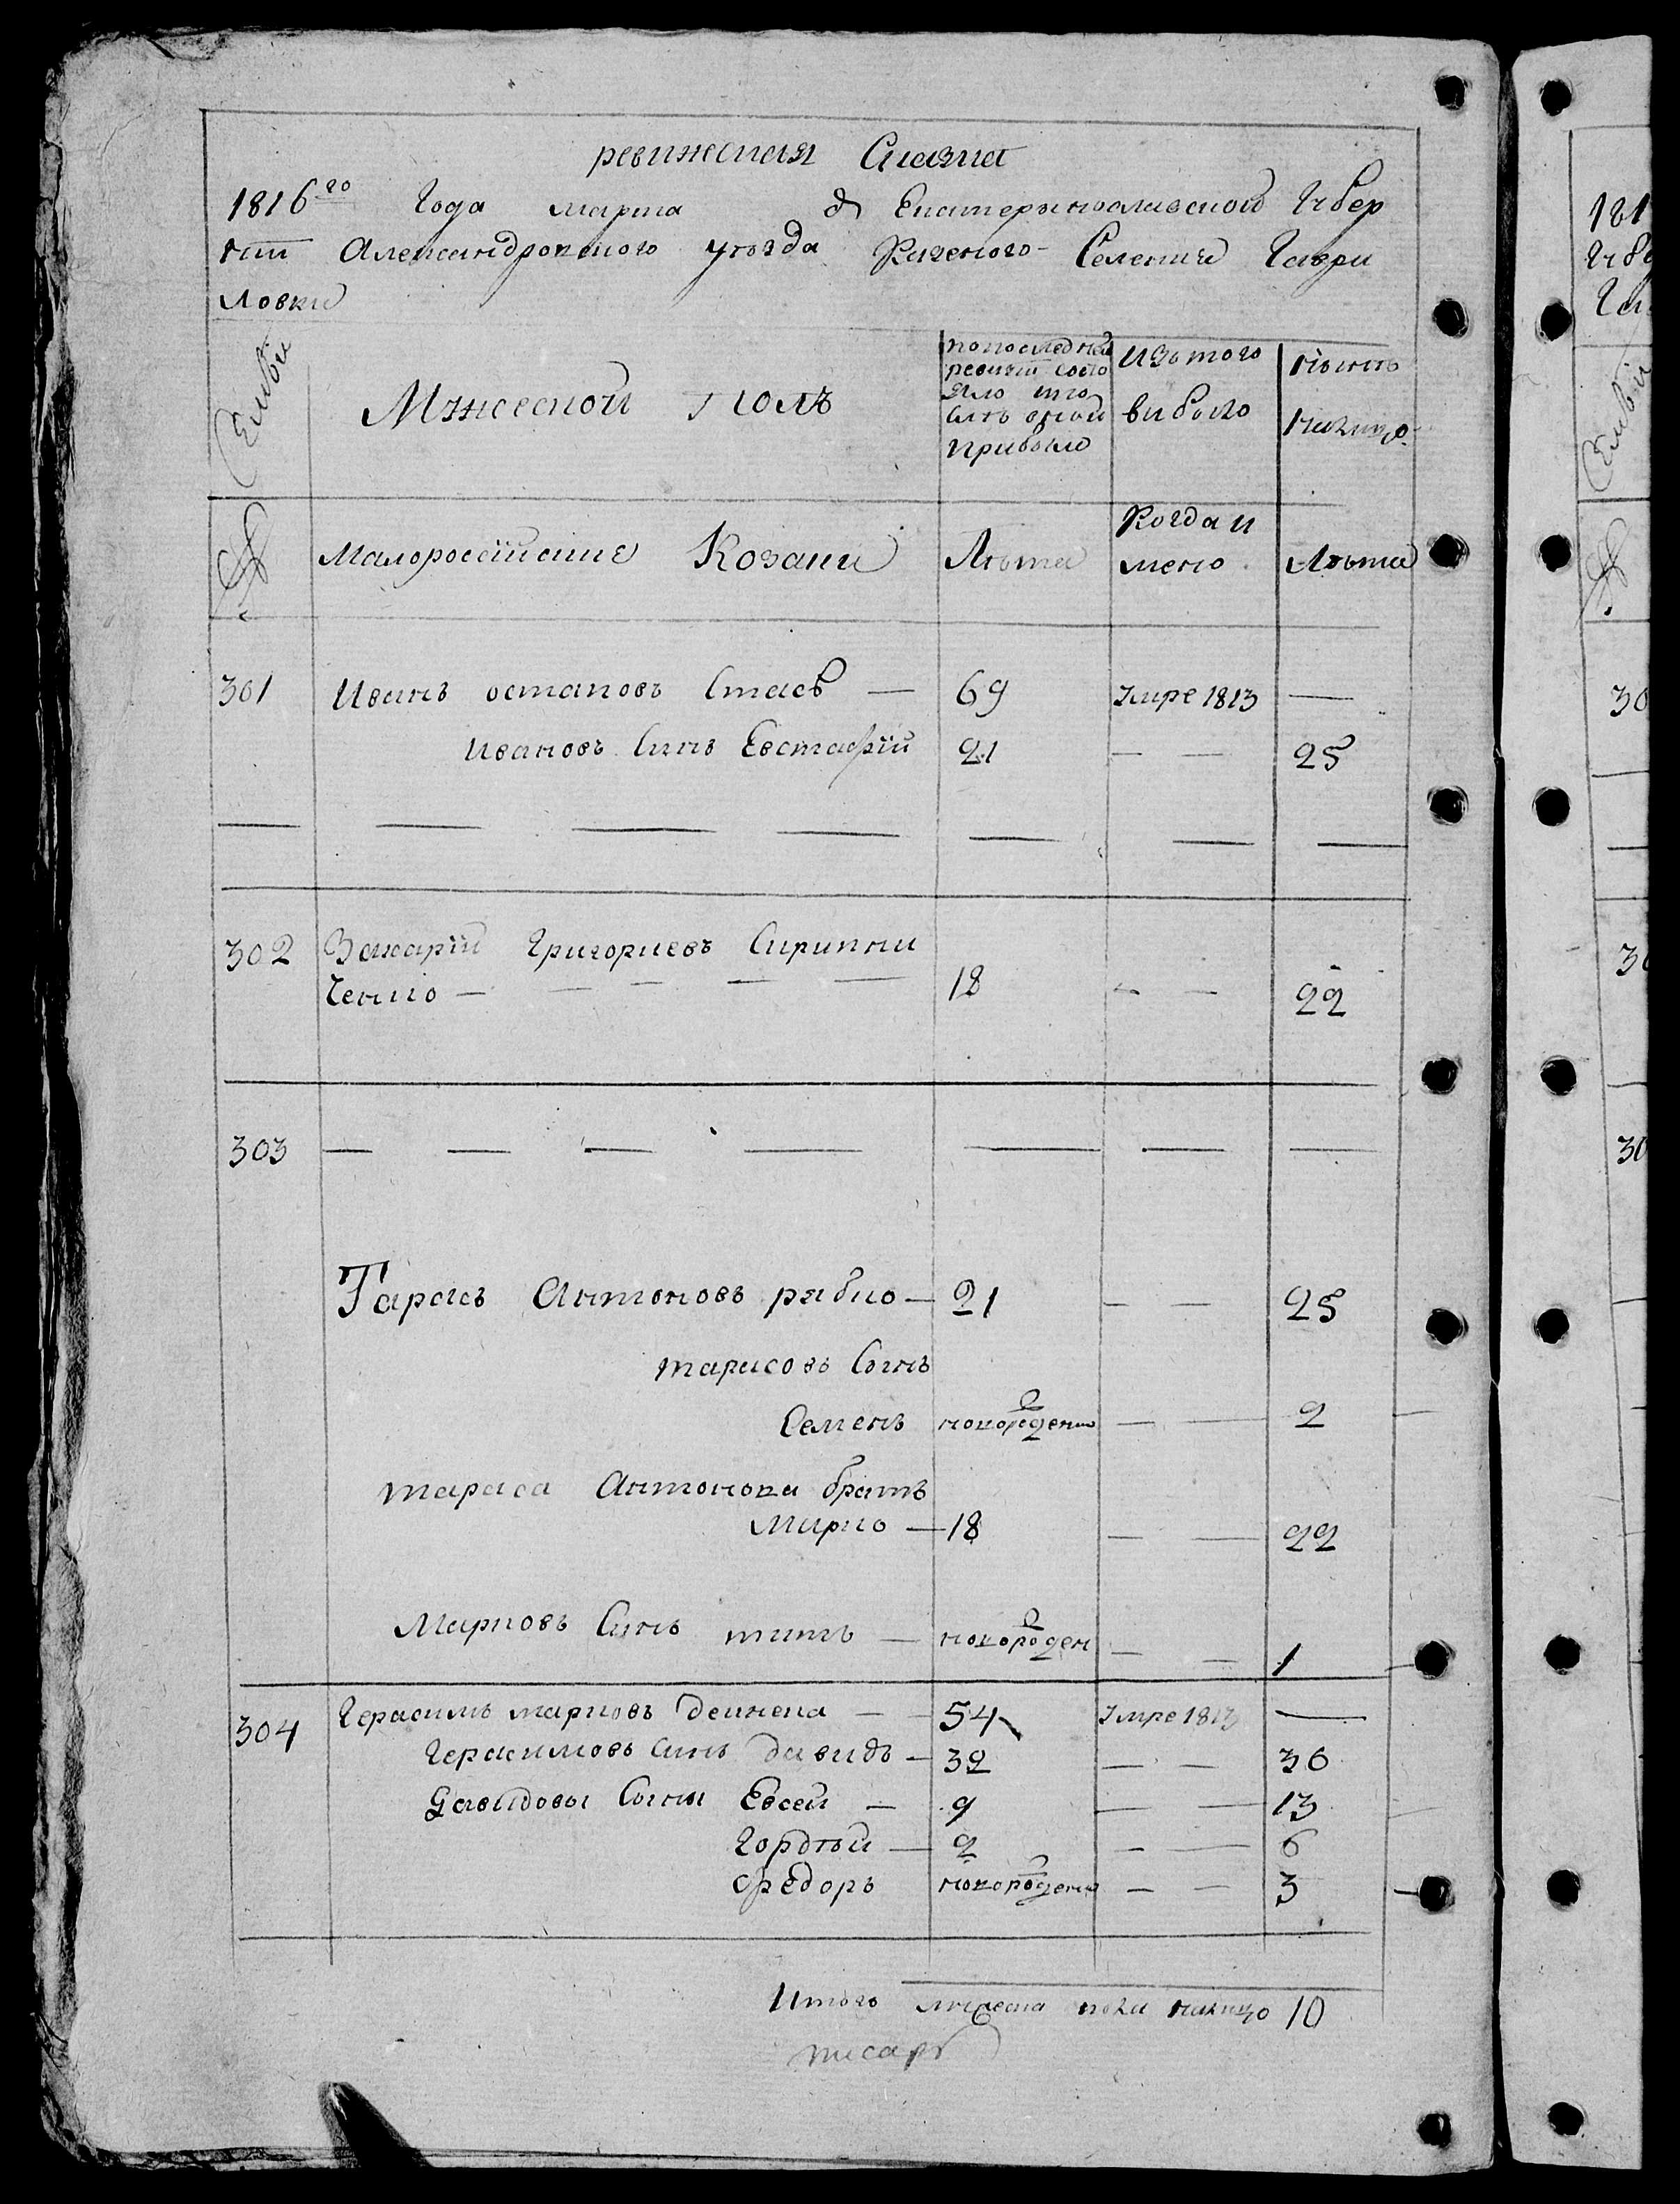 ревижская Сказка
1816го Года марта д Екатеринославской Губер
нии Александровского уезда Казеного Селения Гаври
ловки
Семьи
Мужеской полъ
попоследней ревизии состояло и по слъ оной прибыло
Изътого выбыло
Нынъ налицо
№
Малоросейские Козаки
Лъта
Когда и менно
Лъта
301 Иванъ остаповъ Стасъ — 69 Умре 1813 —
Ивановъ Синъ Евстафий 21 — — 25
302 Захарий Григориевъ Скрипни
ченко — — — — — 18 — — 22
303 — — — — — — —
Тарасъ Антоновъ рябко — 21 — — 25
тарасовъ Сынъ
Семенъ новорожденъ — — 2
тараса Антонова братъ
Марко — 18 — — 22
Марковъ Синъ титъ — новорожден — — 1
304 Герасимъ марковъ Дейнека — 54 Умре 1813 —
Герасимовъ синъ давидъ — 32 — — 36
Давидовы Сыны Евсей — 9 — — 13
Гордъй — 2 — — 6
Федоръ новорожденъ — — 3
Итого мужеска пола налицо 10
писаръ
181
Семьи
№
30
30
30